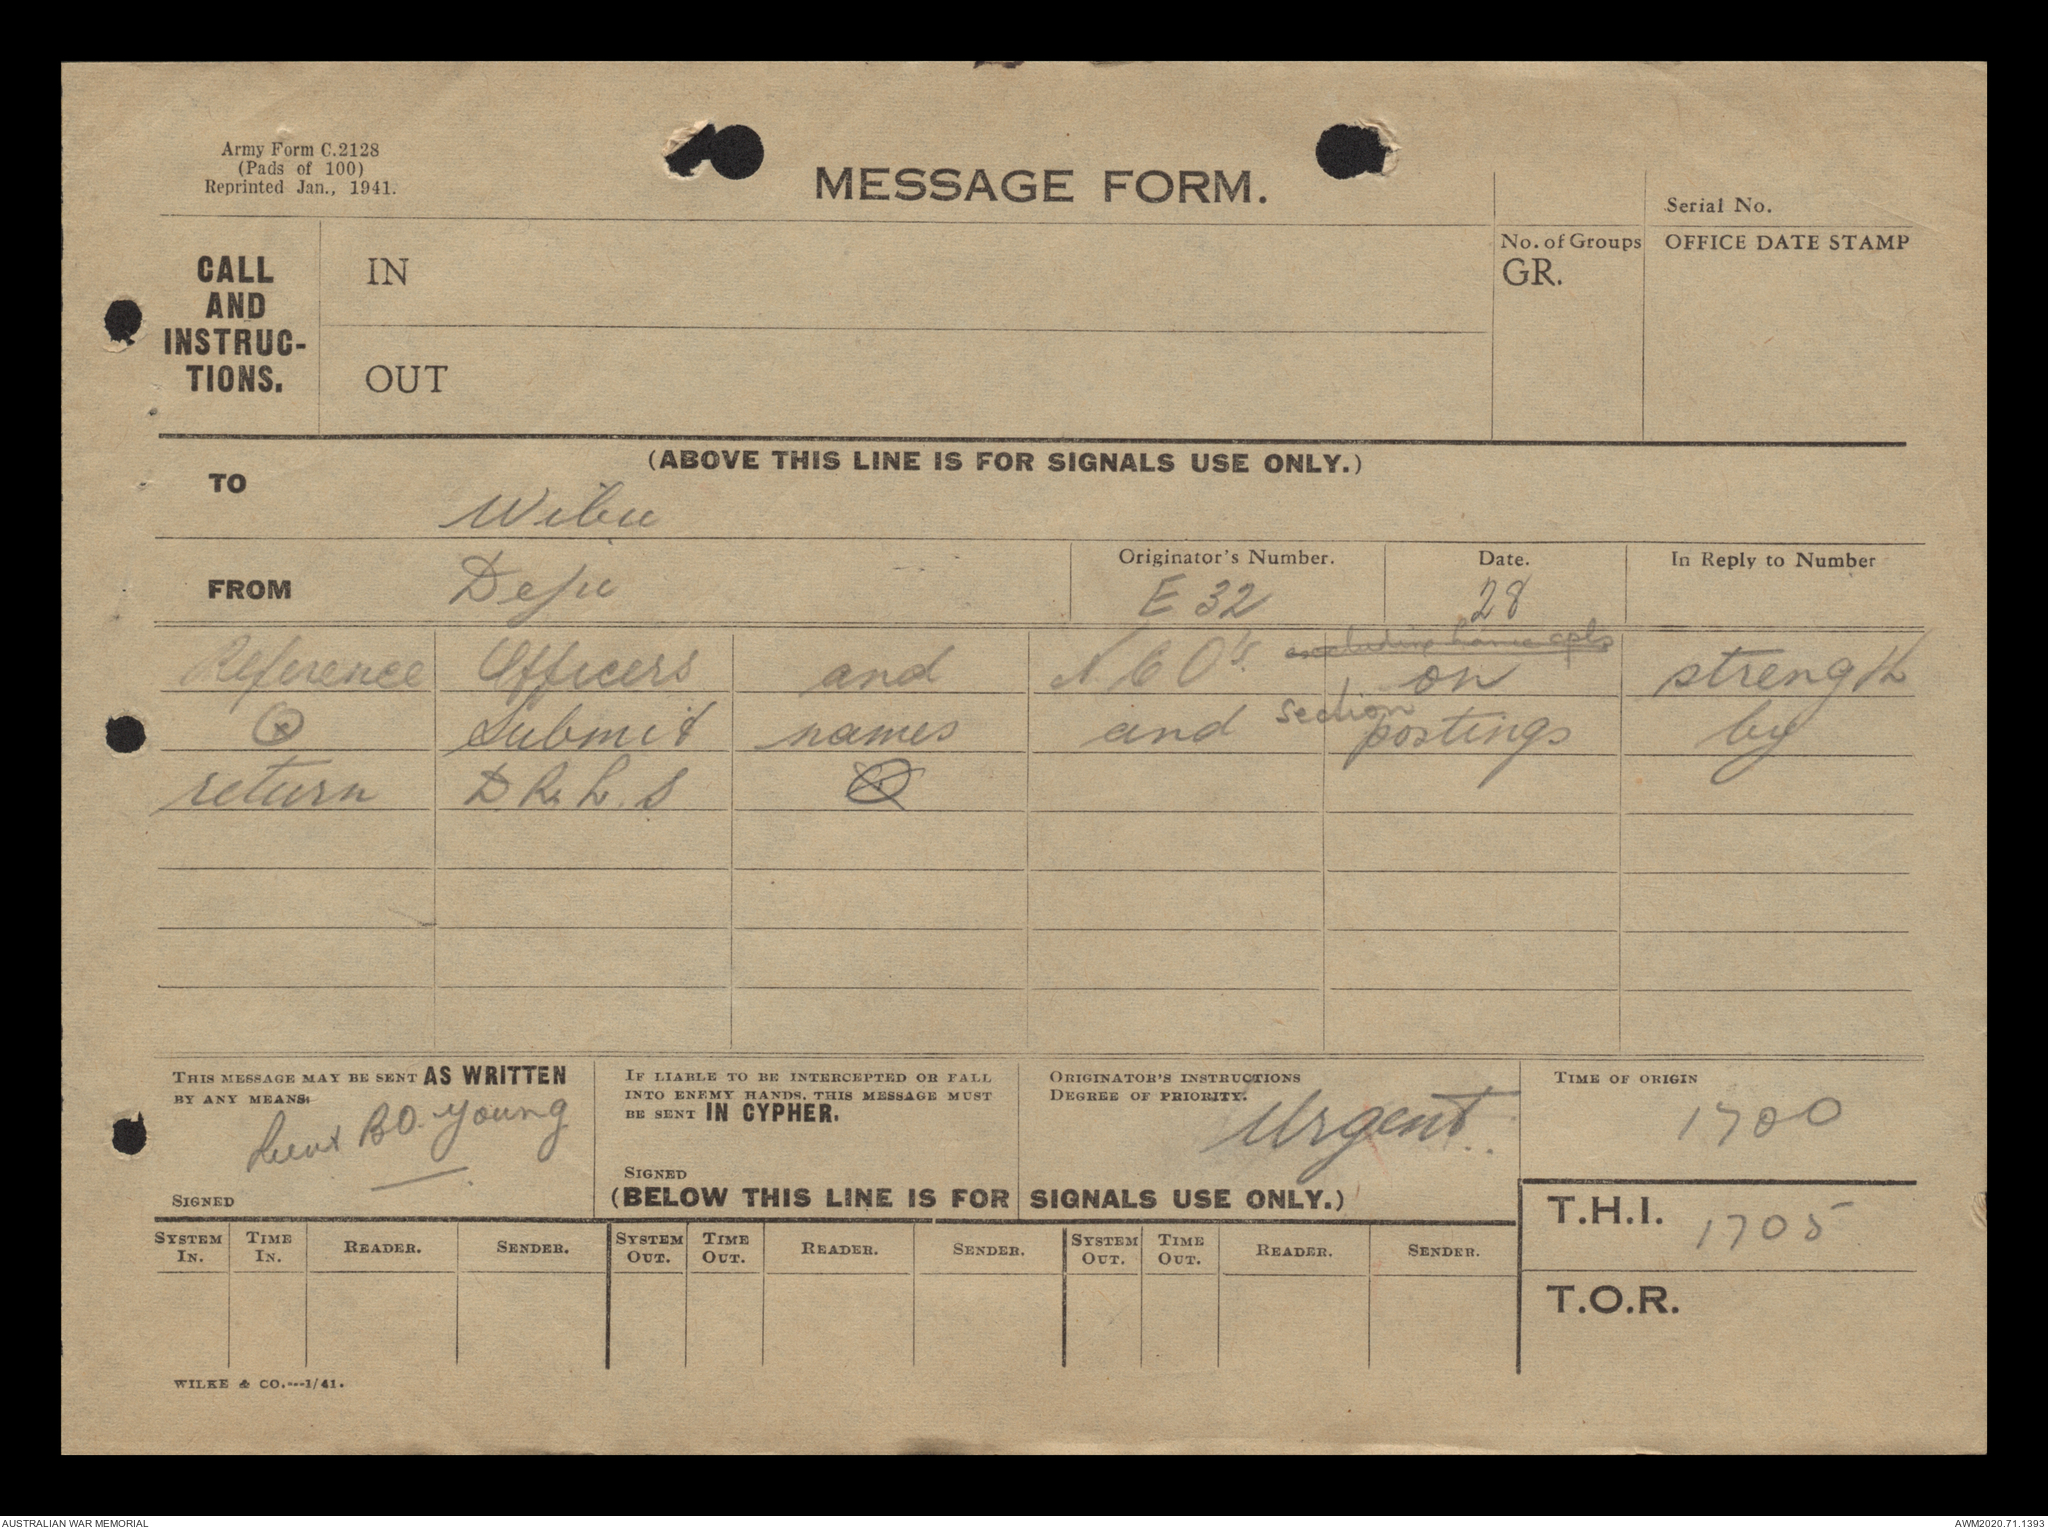 Army Form C.2128
(Pads of 100)
Reprinted Jan., 1941.
MESSAGE FORM.
Serial No.
CALL AND INSTRUC-TIONS.
IN
OUT
No. of Groups
GR.
OFFICE DATE STAMP
(ABOVE THIS LINE IS FOR SIGNALS USE ONLY.)
TO
FROM
Originator's Number.
E 32
Date.
28
In Reply to Number
Reference Officers and N.C.O's. on strength
Submit names and section postings by
return D.R.L.S
THIS MESSAGE MAY BE SENT AS WRITTEN
BY ANY MEANS:
Lieut B.O. Young
SIGNED
IF LIABLE TO BE INTERCEPTED OR FALL
INTO ENEMY HANDS, THIS MESSAGE MUST
BE SENT IN CYPHER.
SIGNED
ORIGINATOR'S INSTRUCTIONS
DEGREE OF PRIORITY.
Urgent.
TIME OF ORIGIN
1700
(BELOW THIS LINE IS FOR SIGNALS USE ONLY.)
T.H.I. 1705
T.O.R.
SYSTEM IN. TIME IN. READER. SENDER. SYSTEM OUT. TIME OUT. READER. SENDER. SYSTEM OUT. TIME OUT. READER. SENDER.
WILKE & CO.---1/41.
AUSTRALIAN WAR MEMORIAL
AWM2020.71.1393